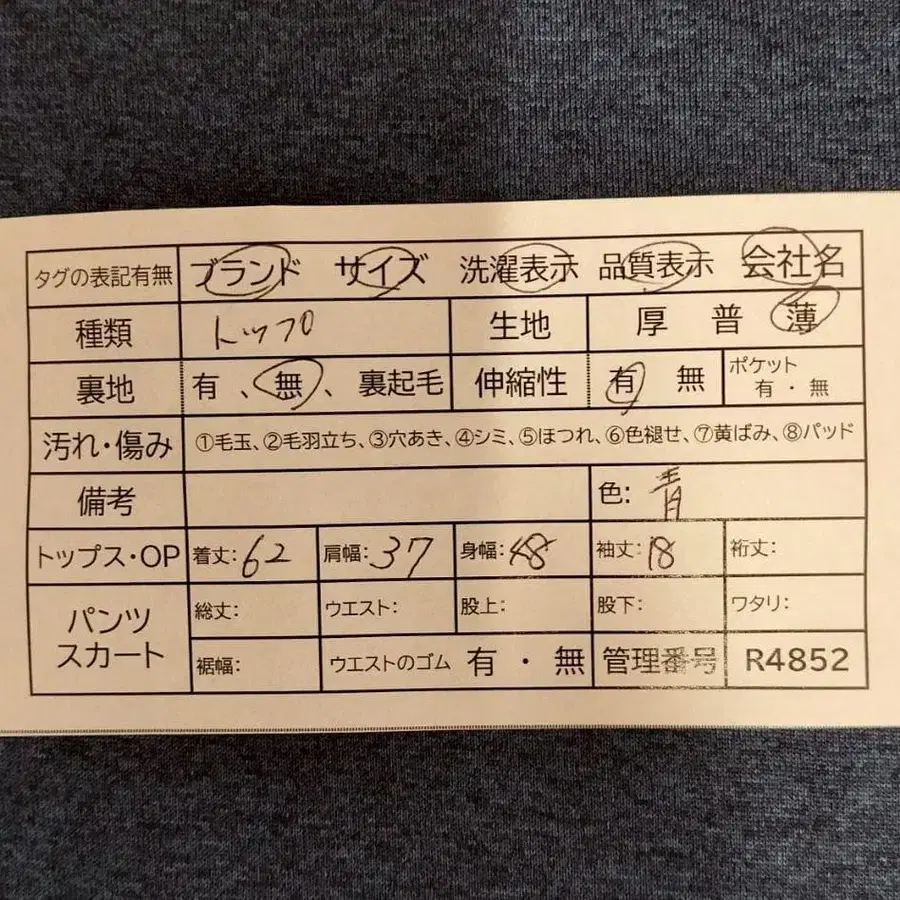 タグの表記有無 ブランド サイズ 洗濯表示 品質表示 会社名
種類 トップ 生地 厚 普 薄
裏地 有 、無、裏起毛 伸縮性 有 無 ポケット 有・無
汚れ・傷み ①毛玉、②毛羽立ち、③穴あき、④シミ、⑤ほつれ、⑥色褪せ、⑦黄ばみ、⑧パッド
備考 色: 青
トップス・OP 着丈: 62 肩幅: 37 身幅: 48 袖丈: 18 裄丈:
パンツ スカート 総丈: ウエスト: 股上: 股下: ワタリ:
裾幅: ウエストのゴム 有・無 管理番号 R4852